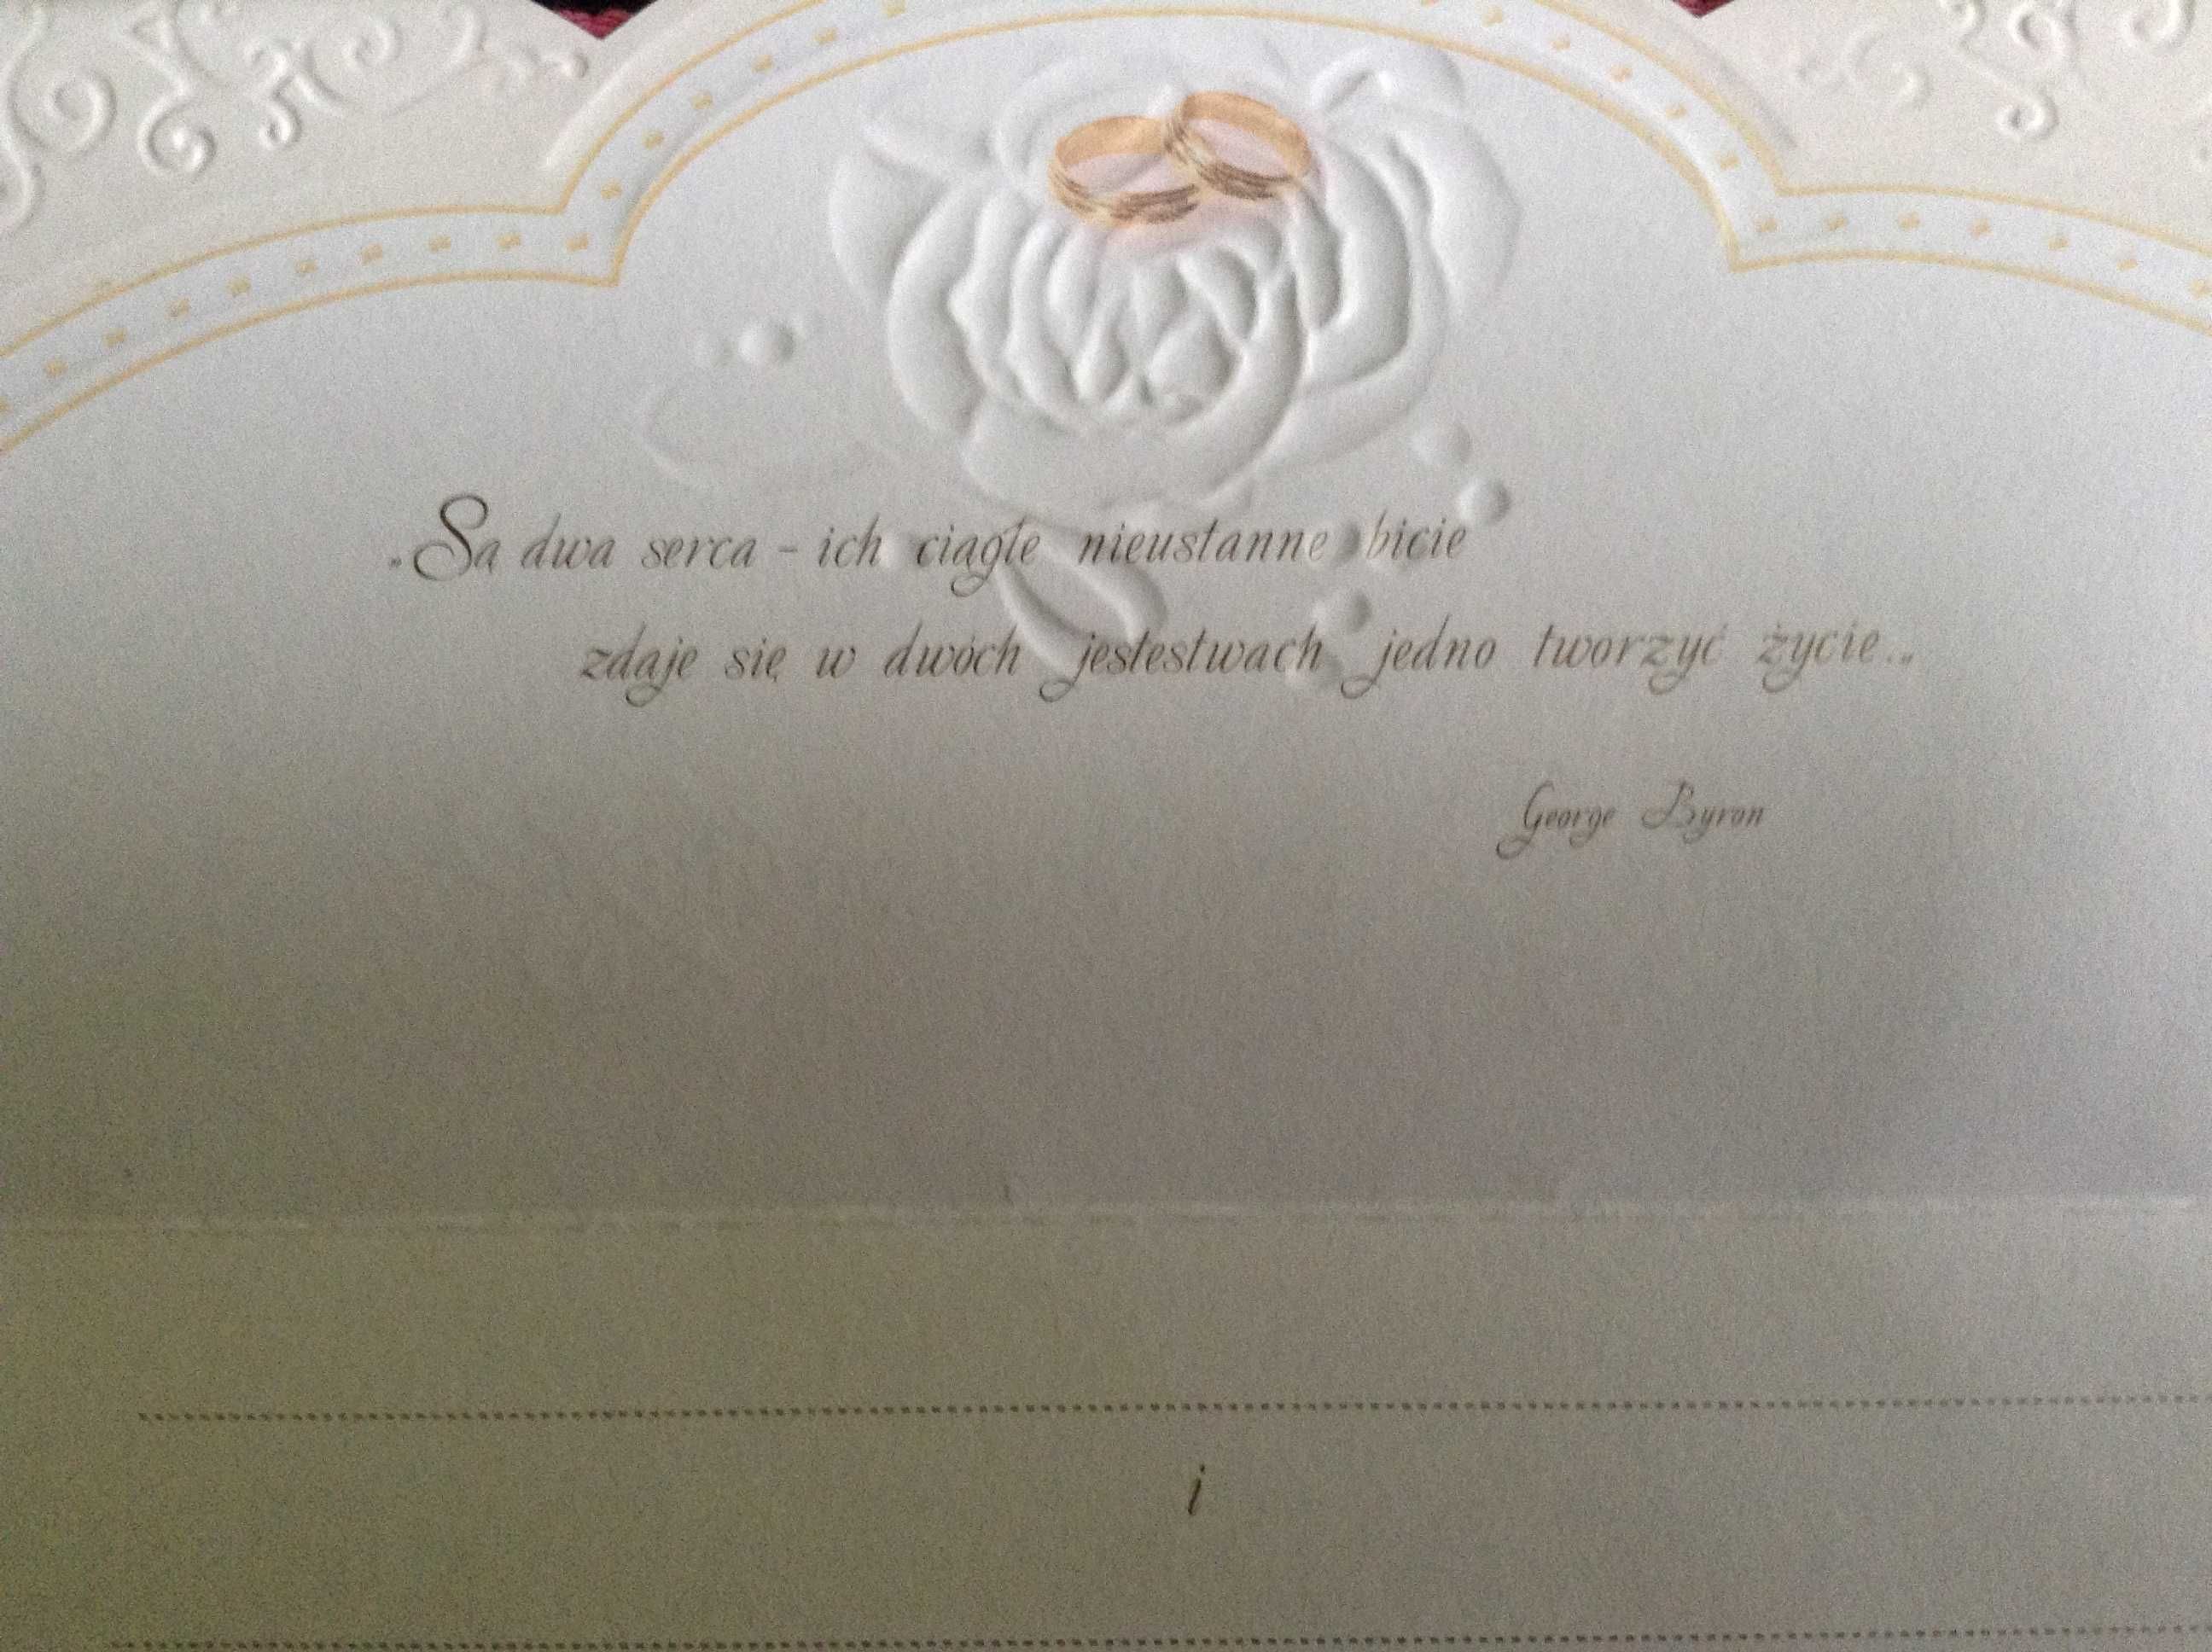 „Są dwa serca - ich ciągłe nieustanne bicie
zdaje się w dwóch jestestwach jedno tworzyć życie...”
George Byron
i